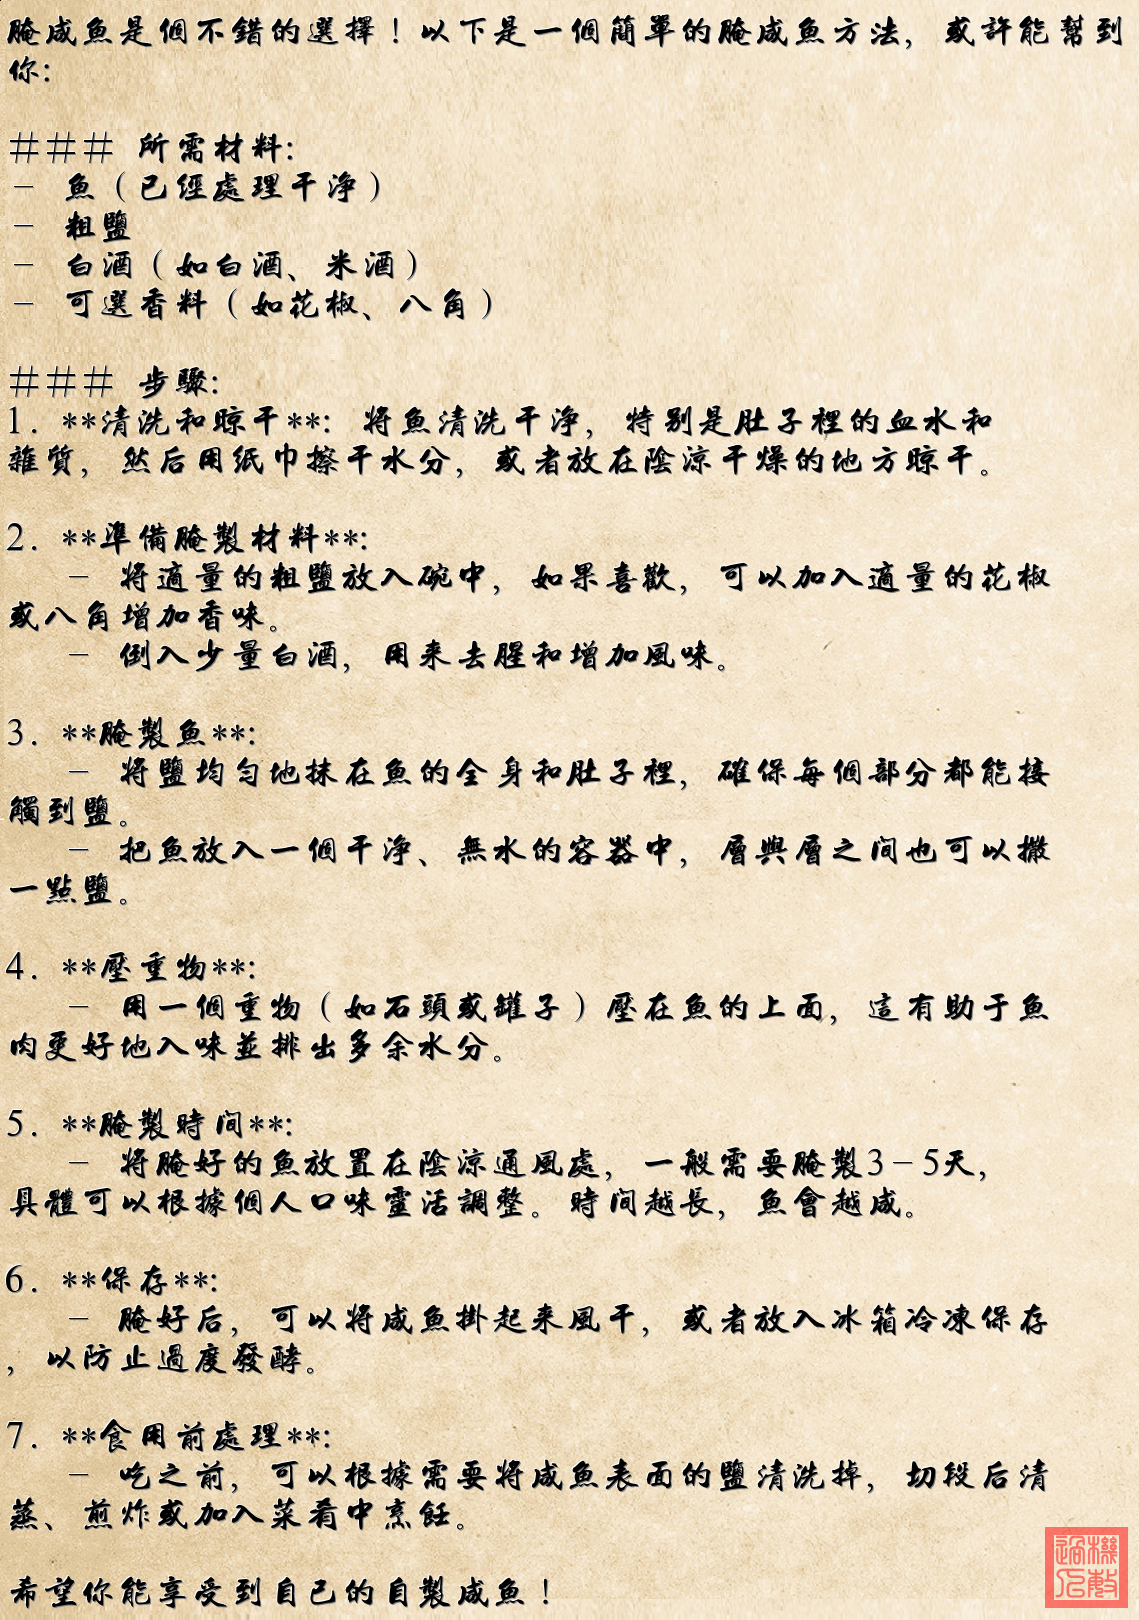 腌咸魚是個不錯的選擇！以下是一個簡單的腌咸魚方法，或許能幫到
你：
### 所需材料：
- 魚（已經處理干净）
- 粗鹽
- 白酒（如白酒、米酒）
- 可選香料（如花椒、八角）
### 步驟：
1. **清洗和晾干**：將魚清洗干净，特别是肚子裡的血水和
雜質，然后用纸巾擦干水分，或者放在陰涼干燥的地方晾干。
2. **準備腌製材料**：
- 將適量的粗鹽放入碗中，如果喜歡，可以加入適量的花椒
或八角增加香味。
- 倒入少量白酒，用来去腥和增加風味。
3. **腌製魚**：
- 將鹽均勻地抹在魚的全身和肚子裡，確保每個部分都能接
觸到鹽。
- 把魚放入一個干净、無水的容器中，層與層之间也可以撒
一點鹽。
4. **壓重物**：
- 用一個重物（如石頭或罐子）壓在魚的上面，這有助于魚
肉更好地入味並排出多余水分。
5. **腌製時间**：
- 將腌好的魚放置在陰涼通風處，一般需要腌製3-5天，
具體可以根據個人口味靈活調整。時间越長，魚會越咸。
6. **保存**：
- 腌好后，可以將咸魚掛起来風干，或者放入冰箱冷凍保存
，以防止過度發酵。
7. **食用前處理**：
- 吃之前，可以根據需要將咸魚表面的鹽清洗掉，切段后清
蒸、煎炸或加入菜肴中烹飪。
希望你能享受到自己的自製咸魚！